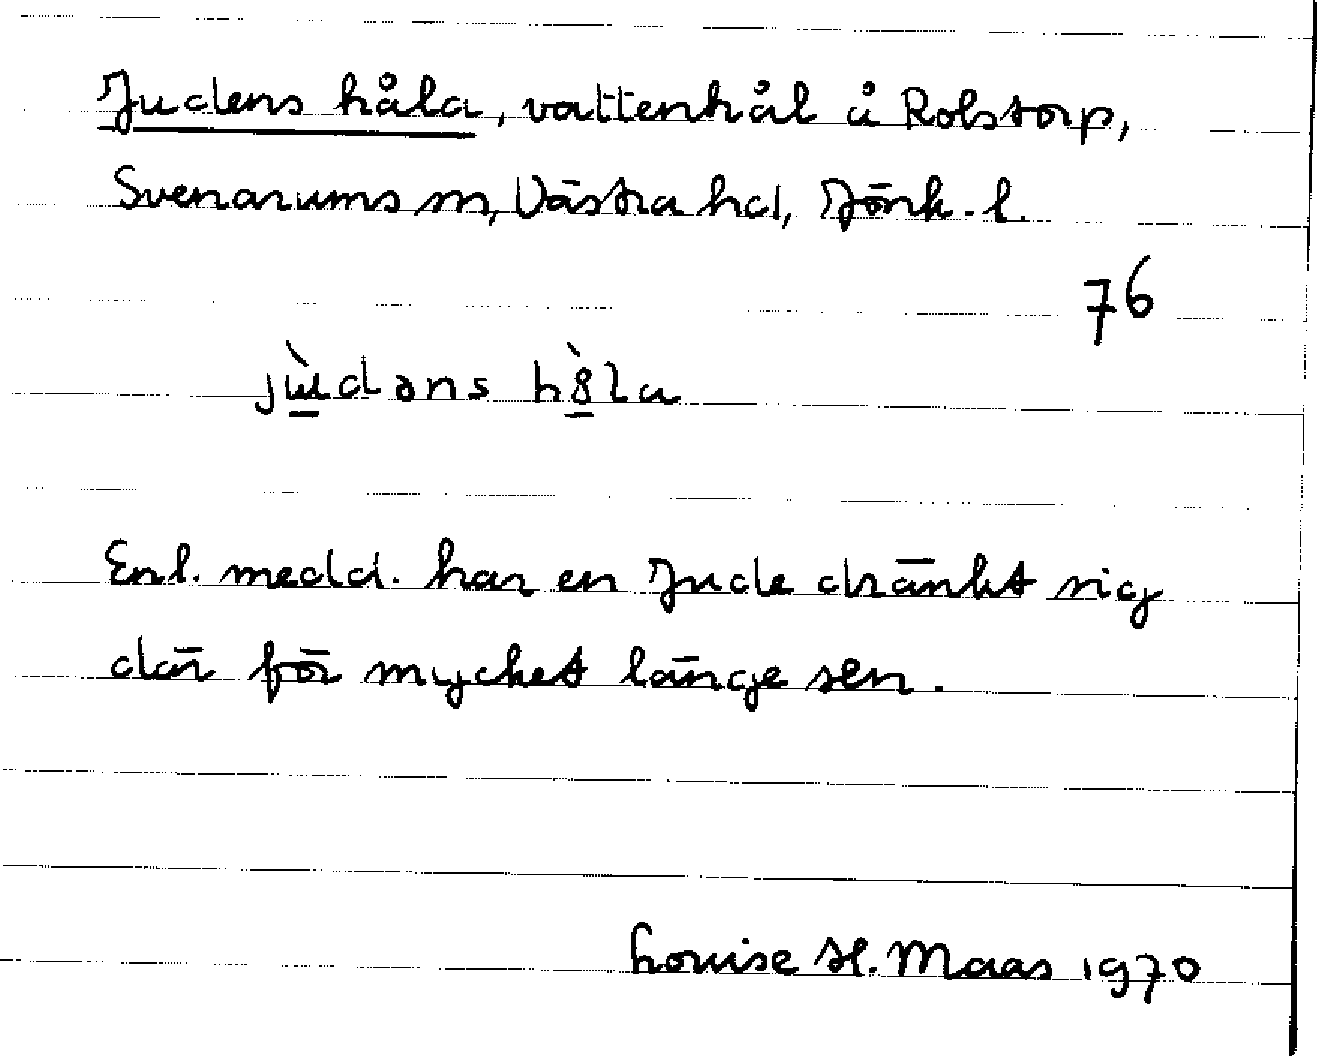 Judens håla, vattenhål å Rolstorp,
Svenarums sn, Västra hd, Jönk. l.
76
jɯ̀dəns h8̀la
Enl. medd. har en Jude dränkt sig
där för mycket länge sen.
Louise H. Maas 1970